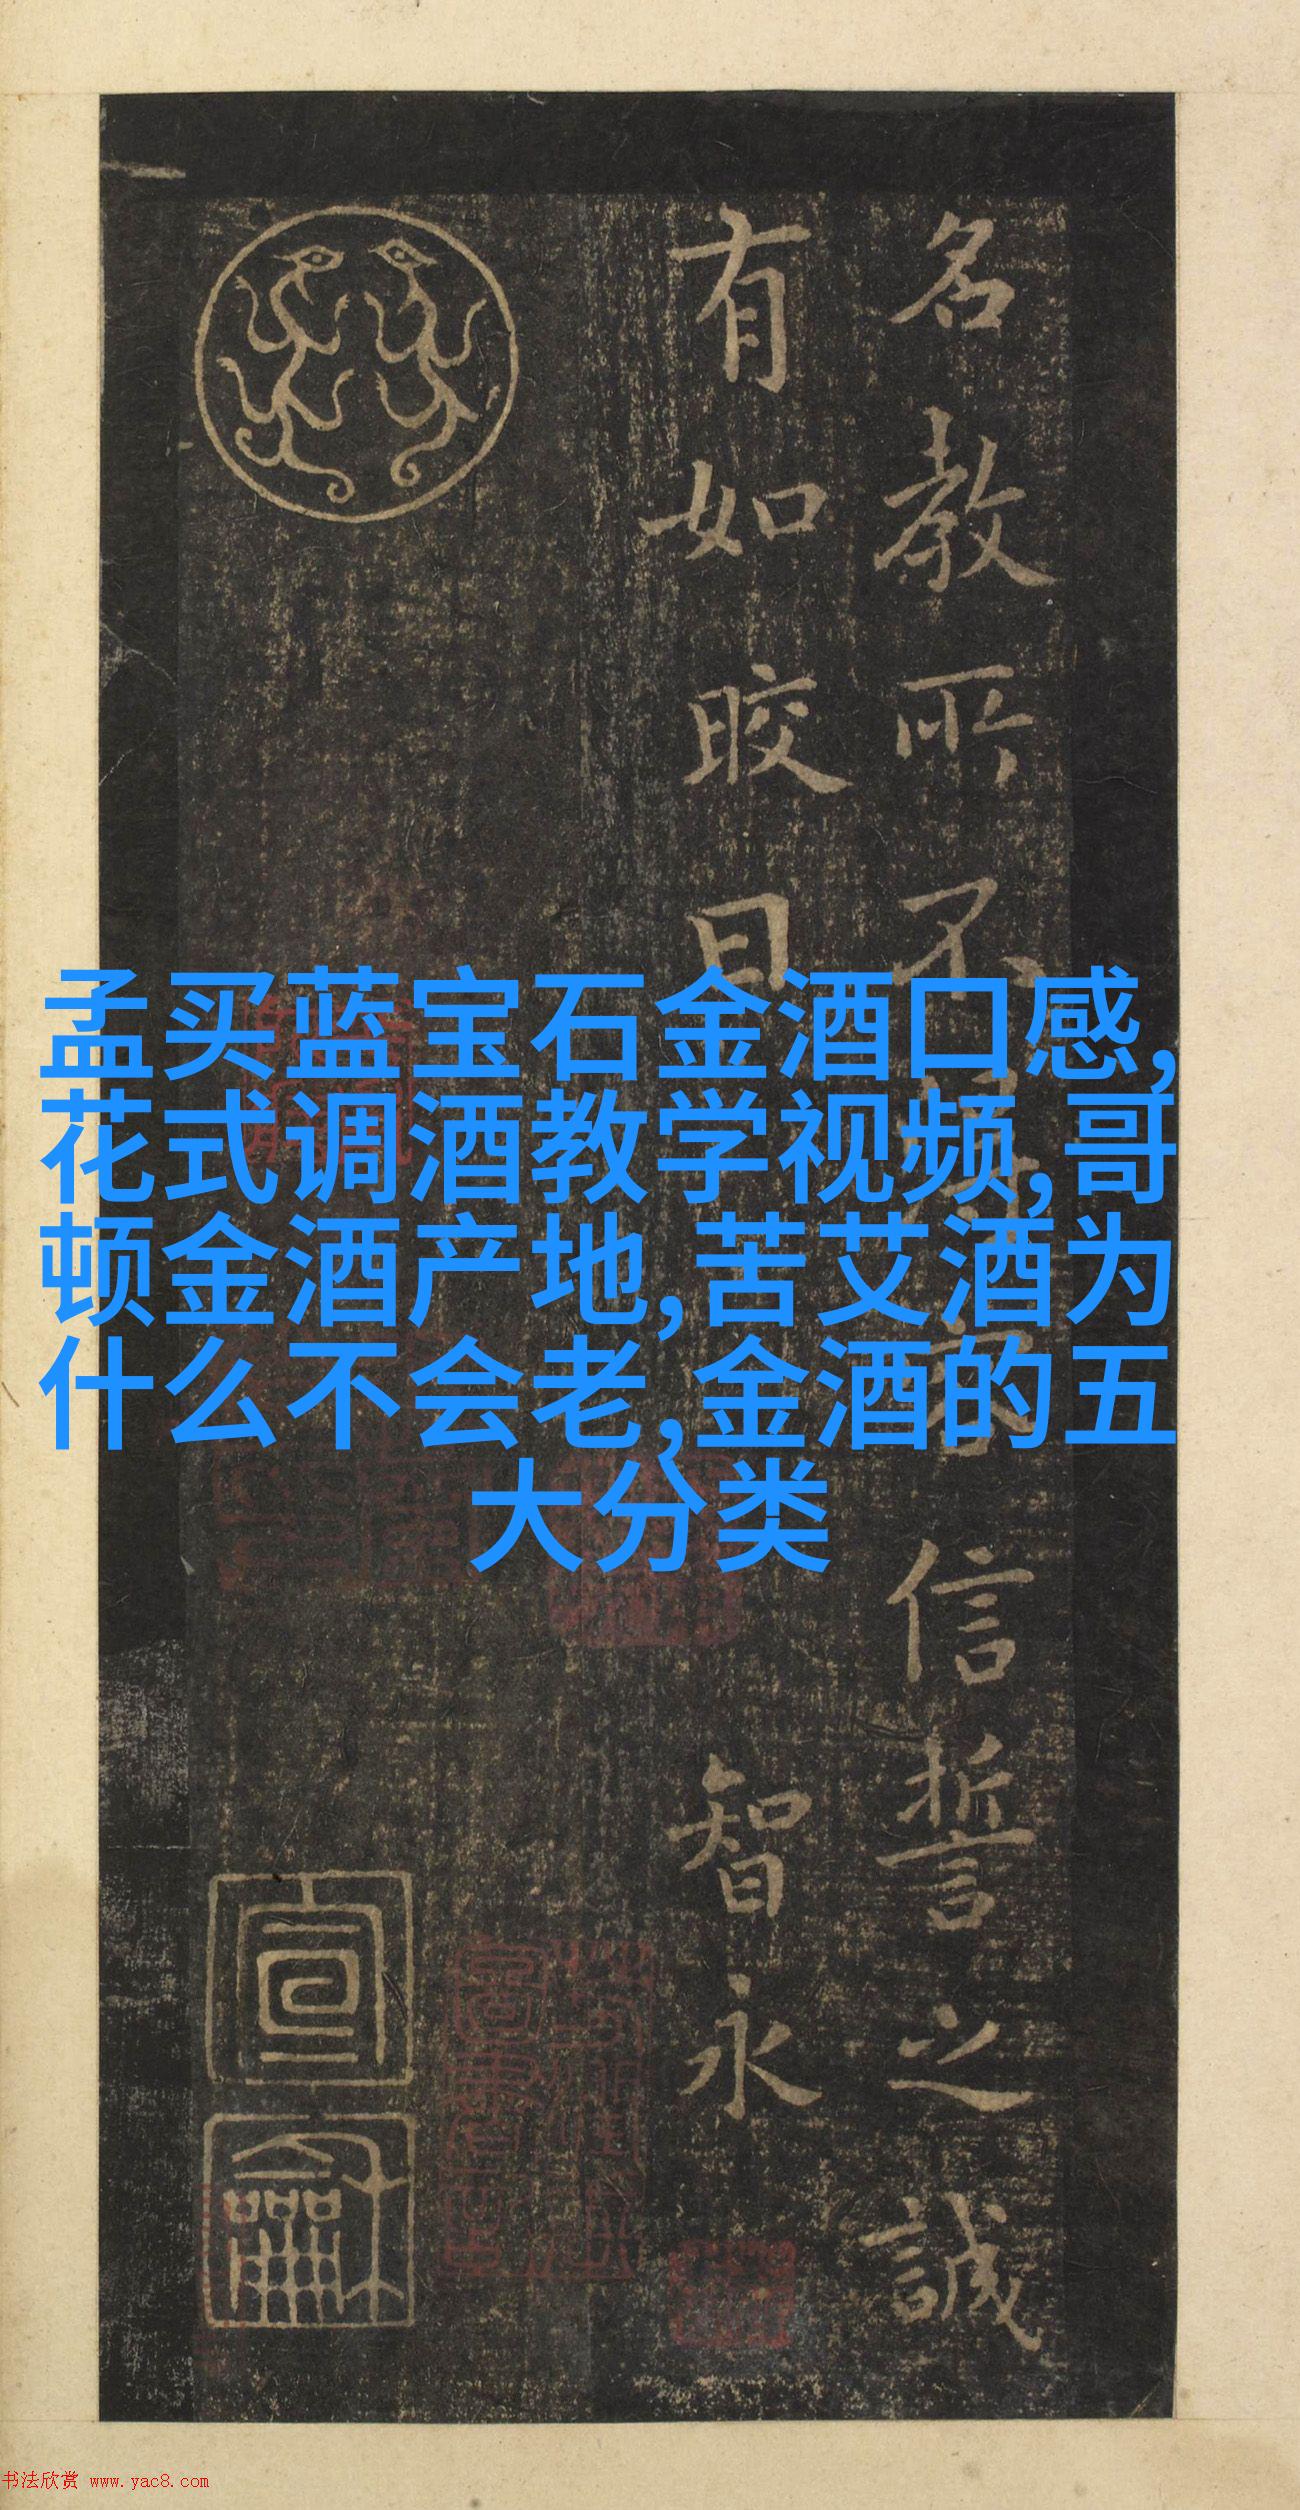 名教所不
信誓之誠
有如晈日
智永
孟买蓝宝石金酒口感,
花式调酒教学视频,哥
顿金酒产地,苦艾酒为
什么不会老,金酒的五
大分类
书法欣赏 www.yac8.com